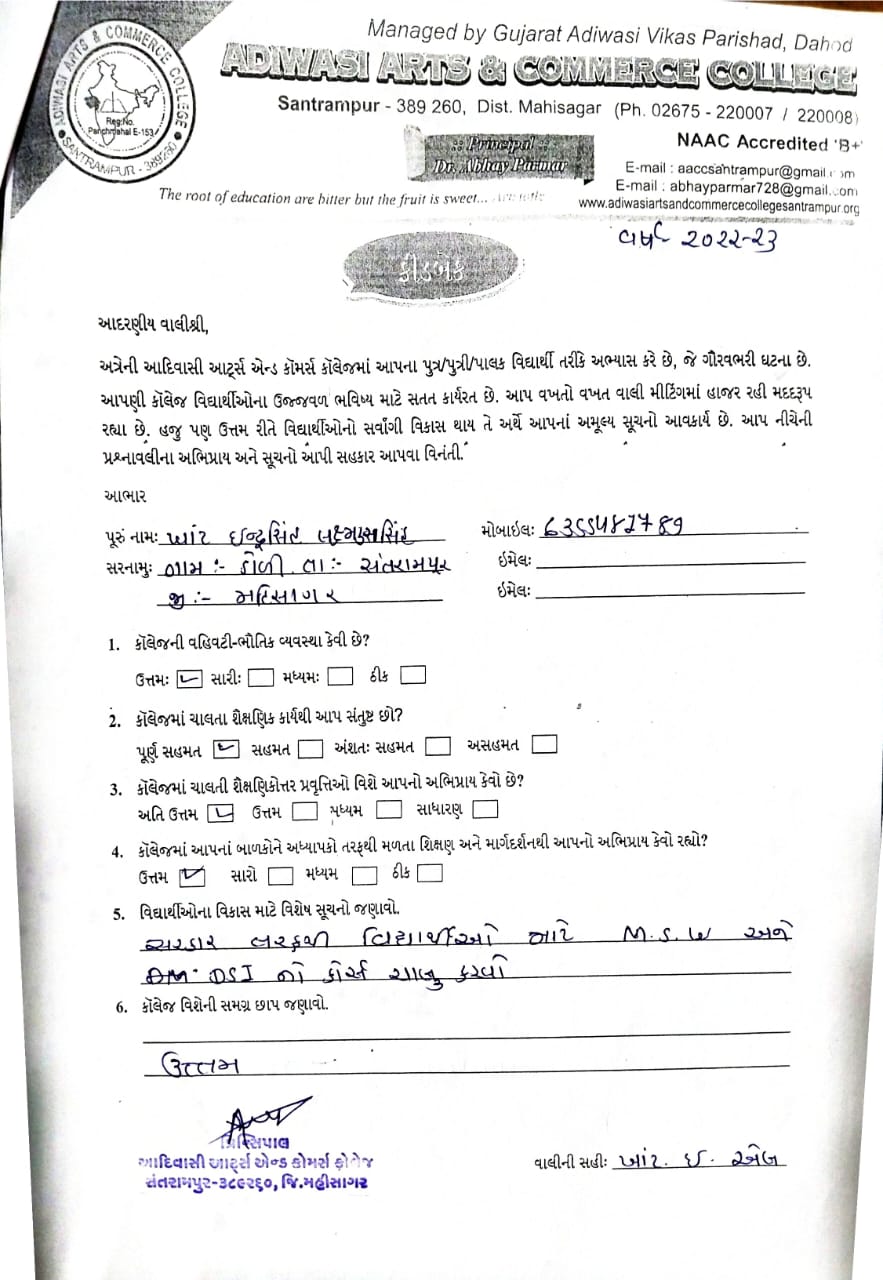 Managed by Gujarat Adiwasi Vikas Parishad, Dahod
ADIWASI ARTS & COMMERCE COLLEGE
ADIWASI ARTS & COMMERCE COLLEGE
Reg.No.
Panchmahal E-153
SANTRAMPUR - 389260
Santrampur - 389 260, Dist. Mahisagar (Ph. 02675 - 220007 / 220008)
:: Principal ::
Dr. Abhay Parmar
NAAC Accredited 'B+'
E-mail : aaccsantrampur@gmail.com
E-mail : abhayparmar728@gmail.com
www.adiwasiartsandcommercecollegesantrampur.org
The root of education are bitter but the fruit is sweet...
વર્ષ 2022-23
ફીડબેક
આદરણીય વાલીશ્રી,
અત્રેની આદિવાસી આર્ટ્સ એન્ડ કૉમર્સ કૉલેજમાં આપના પુત્ર/પુત્રી/પાલક વિદ્યાર્થી તરીકે અભ્યાસ કરે છે, જે ગૌરવભરી ઘટના છે.
આપણી કૉલેજ વિદ્યાર્થીઓના ઉજ્જવળ ભવિષ્ય માટે સતત કાર્યરત છે. આપ વખતો વખત વાલી મીટિંગમાં હાજર રહી મદદરૂપ
રહ્યા છે. હજુ પણ ઉત્તમ રીતે વિદ્યાર્થીઓનો સર્વાંગી વિકાસ થાય તે અર્થે આપનાં અમૂલ્ય સૂચનો આવકાર્ય છે. આપ નીચેની
પ્રશ્નાવલીના અભિપ્રાય અને સૂચનો આપી સહકાર આપવા વિનંતી.
આભાર
પૂરું નામઃ ખાંટ ઇન્દ્રસિંહ લક્ષ્મણસિંહ મોબાઇલઃ
સરનામુઃ ગામ :- કોળી તા :- સંતરામપુર ઇમેલઃ
જી :- મહિસાગર ઇમેલઃ
1. કૉલેજની વહિવટી-ભૌતિક વ્યવસ્થા કેવી છે?
ઉત્તમઃ સારીઃ મધ્યમઃ ઠીક
2. કૉલેજમાં ચાલતા શૈક્ષણિક કાર્યથી આપ સંતુષ્ટ છો?
પૂર્ણ સહમત સહમત અંશતઃ સહમત અસહમત
3. કૉલેજમાં ચાલતી શૈક્ષણિકોત્તર પ્રવૃત્તિઓ વિશે આપનો અભિપ્રાય કેવો છે?
અતિ ઉત્તમ ઉત્તમ મધ્યમ સાધારણ
4. કૉલેજમાં આપનાં બાળકોને અધ્યાપકો તરફથી મળતા શિક્ષણ અને માર્ગદર્શનથી આપનો અભિપ્રાય કેવો રહ્યો?
ઉત્તમ સારો મધ્યમ ઠીક
5. વિદ્યાર્થીઓના વિકાસ માટે વિશેષ સૂચનો જણાવો.
સરકાર તરફથી વિદ્યાર્થીઓ માટે M.S.W અને
DSI નો કોર્સ ચાલુ કરવો
6. કૉલેજ વિશેની સમગ્ર છાપ જણાવો.
ઉત્તમ
પ્રિન્સિપાલ
આદિવાસી આર્ટ્સ એન્ડ કોમર્સ કોલેજ
સંતરામપુર-૩૮૯૨૬૦, જિ.મહીસાગર
વાલીની સહીઃ ખાંટ. ઇ. એલ